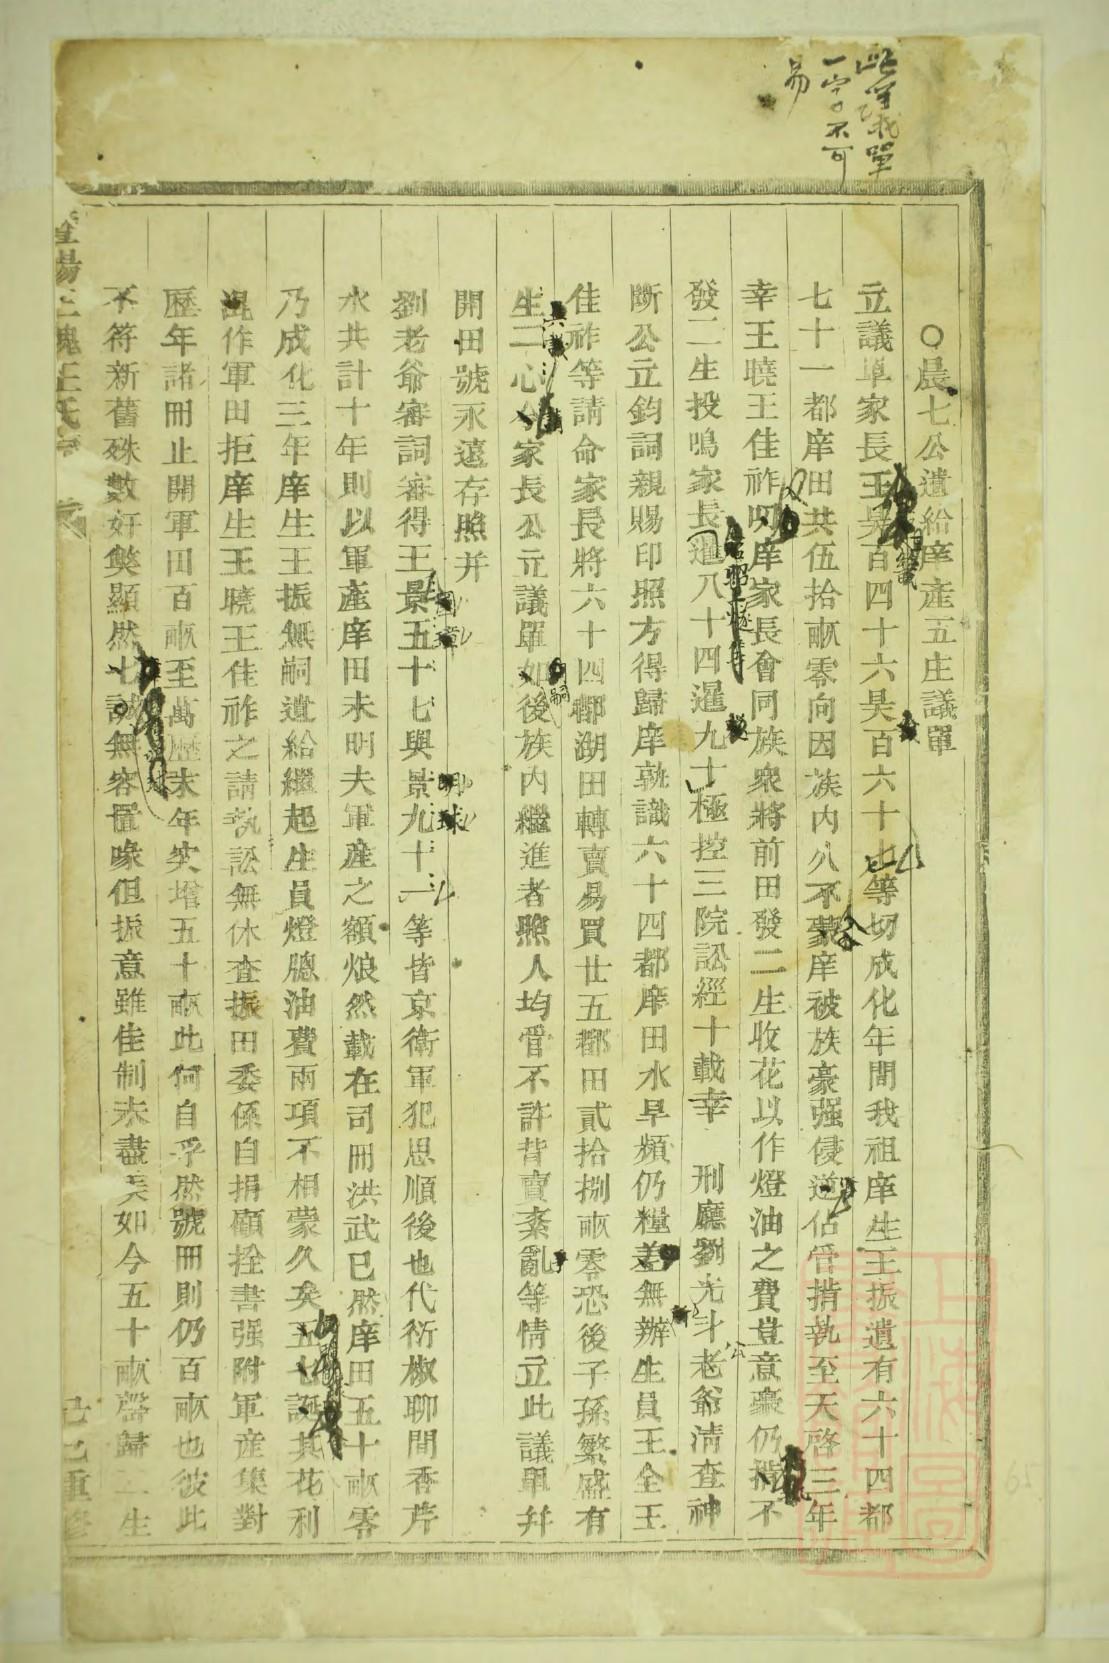 此篇議單
一字不可
易
○晨七公遺給庠產五庄議單
立議單家長王昊百四十六昊百六十七等切成化年間我祖庠生王振遺有六十四都
七十一都庠田共伍拾畝零向因族內八不蒙庠被族豪强侵逆佔管掯執至天啓三年
幸王曉王佳祚叨庠家長會同族衆將前田發二生收花以作燈油之費豈意豪仍掯不
發二生投鳴家長暹八十四暹九十極控三院訟經十載幸 刑廳劉光斗老爺清查神
斷公立鈞詞親賜印照方得歸庠孰識六十四都庠田水旱頻仍糧差無辦生員王全王
佳祚等請命家長將六十四都湖田轉賣易買廿五都田貳拾捌畝零恐後子孫繁盛有
生二心公家長公立議單如後族內繼進者照人均管不許背賣紊亂等情立此議單幷
開田號永遠存照并
劉老爺審詞審得王景五十七與景九十一等皆京衛軍犯思順後也代衍椒聊間香芹
水共計十年則以軍產庠田未明夫軍產之額烺然載在司冊洪武已然庠田五十畝零
乃成化三年庠生王振無嗣遺給繼起生員燈牕油費兩項不相蒙久矣五七誕其花利
混作軍田拒庠生王曉王佳祚之請執訟無休查振田委係自捐顧拴書强附軍產集對
歷年諸冊止開軍田百畝至萬歷末年突增五十畝此何自乎然號冊則仍百畝也彼此
不符新舊殊數奸獘顯然七誠無容置喙但振意雖佳制未盡美如今五十畝罄歸二生
王氏
己巳重修